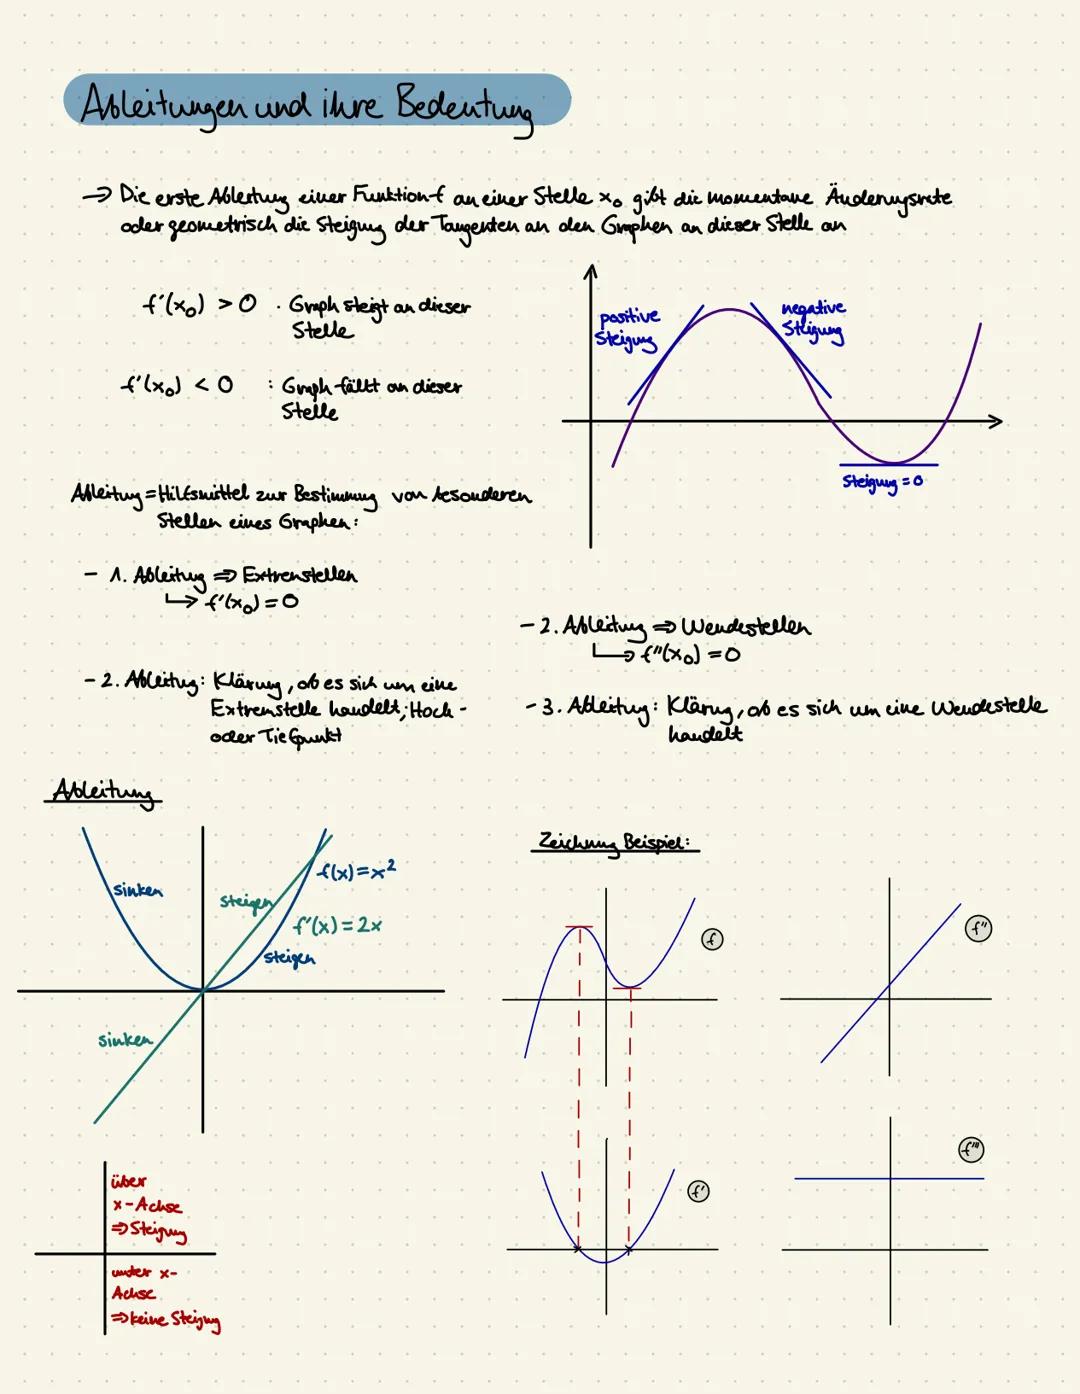 Ableitungen und ihre Bedeutung
→ Die erste Ableitung einer Funktion f an einer Stelle x₀ gibt die momentane Änderungsrate
oder geometrisch die Steigung der Tangenten an den Graphen an dieser Stelle an
f'(x₀) > 0 : Graph steigt an dieser
Stelle
f'(x₀) < 0 : Graph fällt an dieser
Stelle
positive
Steigung
negative
Steigung
Steigung = 0
Ableitung = Hilfsmittel zur Bestimmung von besonderen
Stellen eines Graphen:
- 1. Ableitung ⇒ Extremstellen
↳ f'(x₀) = 0
- 2. Ableitung: Klärung, ob es sich um eine
Extremstelle handelt; Hoch-
oder Tiefpunkt
- 2. Ableitung ⇒ Wendestellen
↳ f''(x₀) = 0
- 3. Ableitung: Klärung, ob es sich um eine Wendestelle
handelt
Ableitung
sinken
steigen
f(x) = x²
f'(x) = 2x
steigen
sinken
über
x-Achse
⇒ Steigung
unter x-
Achse
⇒ keine Steigung
Zeichnung Beispiel:
f
f''
f'
f'''